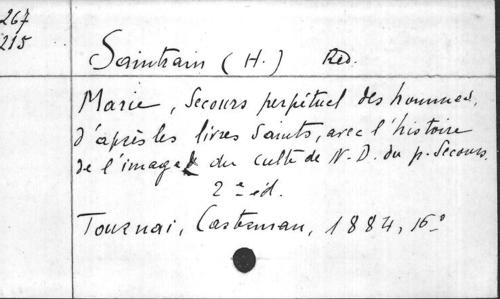 267
215
Saintrain (H.) Réd.
Marie, Secours perpétuel des hommes,
d'après les livres Saints, avec l'histoire
de l'image & du culte de N.-D. du p. Secours.
2e éd.
Tournai, Casterman, 1884, 16°